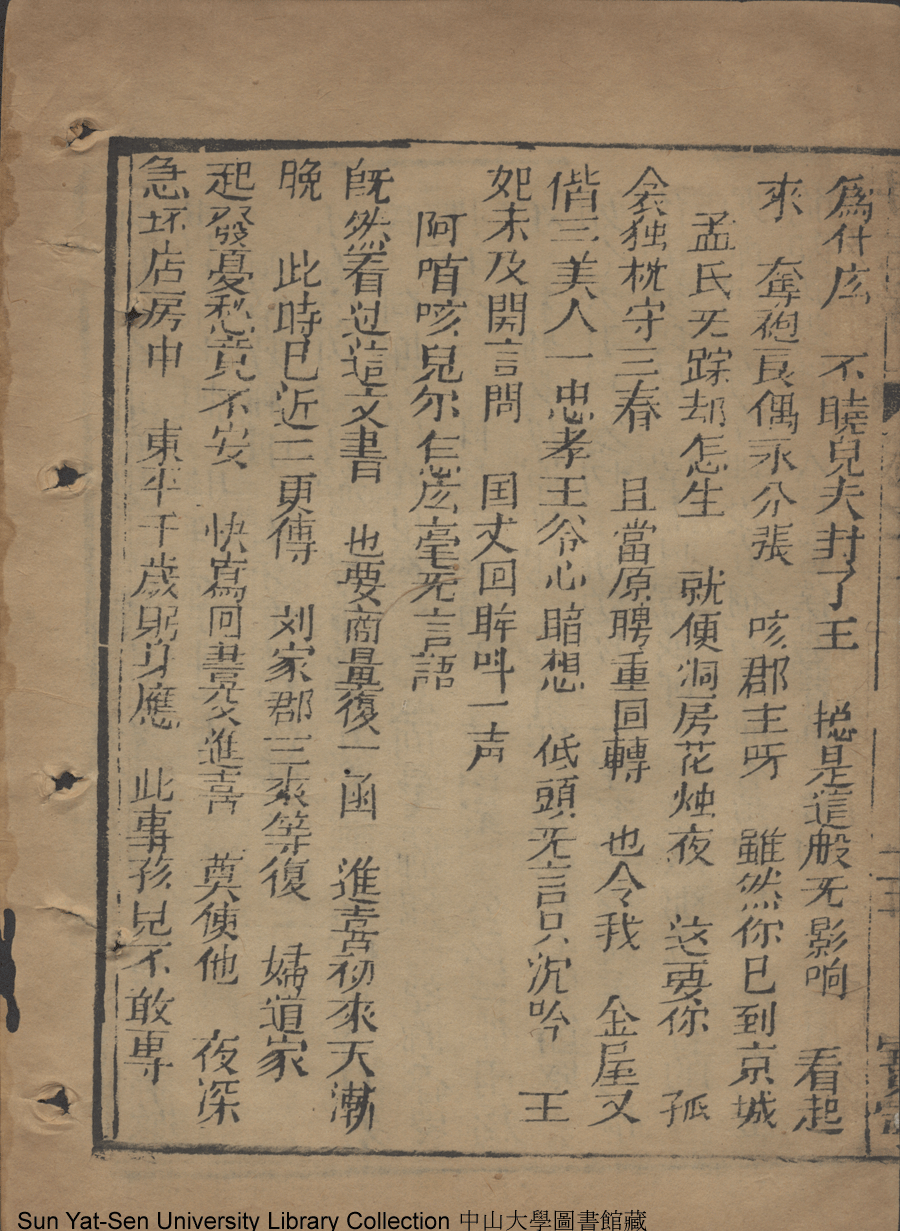 爲什庅　不曉兒夫封了王　揔是這般旡影响　看起
來　奪袍良偶永分張　咳郡主呀　雖然你巳到京城
孟氏旡踪却怎生　就便洞房花烛夜　这要你　孤
衾独枕守三春　且當原聘重囬轉　也令我　金屋又
偕三美人一忠孝王爷心暗想　低頭旡言只沉吟　王
妃未及開言問　囯丈回眸呌一声
阿唷咳兒尔怎庅毫旡言語
旣然看过這文書　也要商量復一函　進喜初來天漸
晚　此時巳近二更傳　刘家郡主來等復　婦道家
起發憂愁竟不安　快寫回書交進喜　莫使他　夜深
急坏店房中　東平千歲躬身應　此事孩兒不敢專
二三
Sun Yat-Sen University Library Collection 中山大學圖書館藏